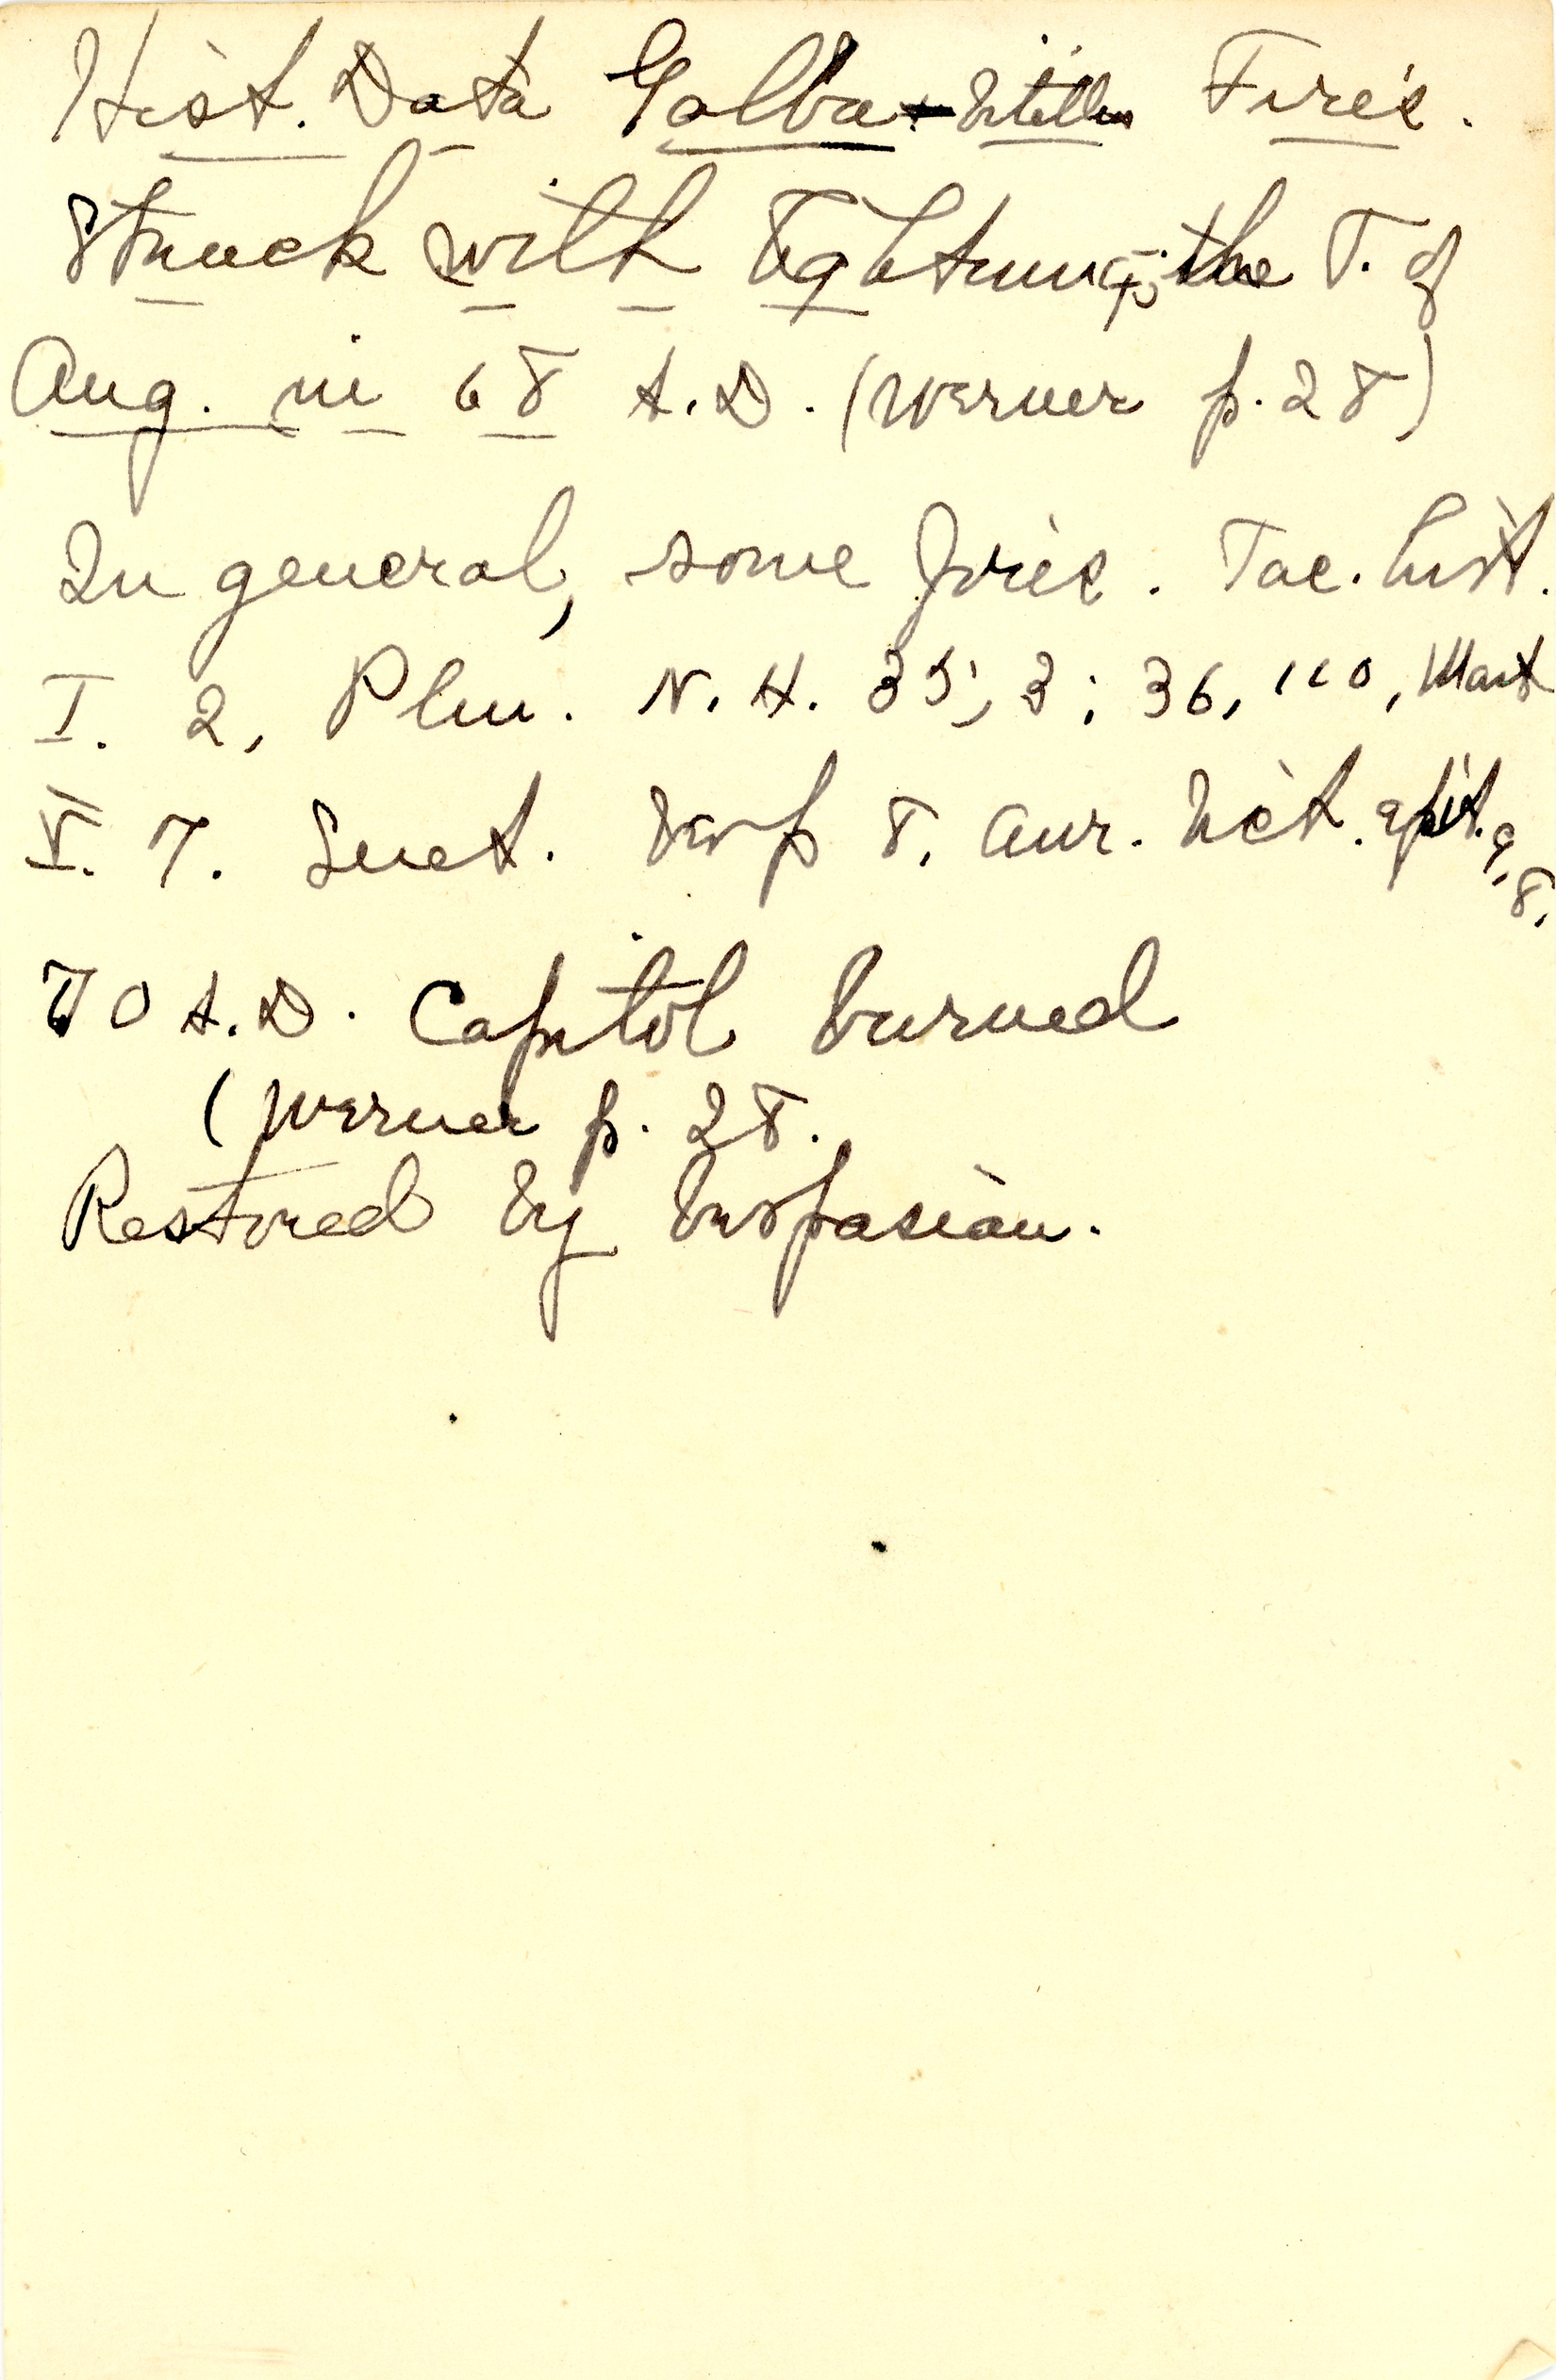 Hist. Data Galba-Vitellius Fires.
Struck with lightning: the T. of
Aug. in 68 A.D. (Werner p. 28)
In general, some fires. Tac. hist.
I. 2, Plin. N. H. 35, 3; 36, 110, Mart
V. 7. Suet. Vesp 8. Aur. Vict. epit. 9,
8.
70 A.D. Capitol burned
(Werner p. 28.
Restored by Vespasian.